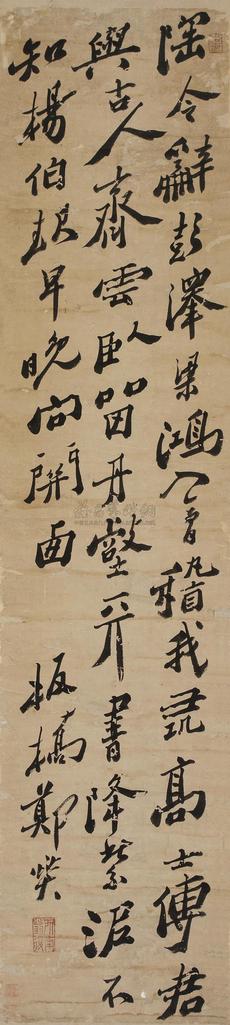 陶令辭彭澤梁鴻入會稽我尋高士傳君
與古人齊雲臥留丹壑天書降紫泥不
知楊伯起早晚向關西
板橋鄭燮